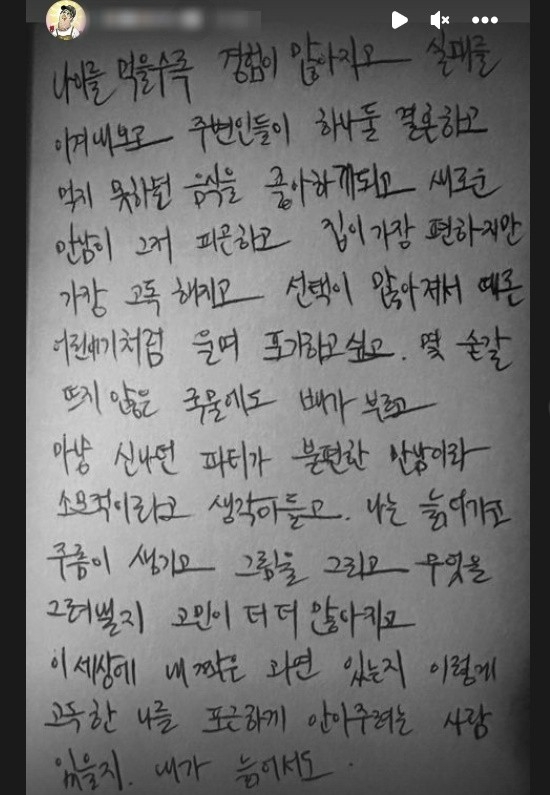 나이를 먹을수록 경험이 많아지고 실패를
이겨내보고 주변인들이 하나둘 결혼하고
먹지 못하던 음식을 좋아하게되고 새로운
만남이 그저 피곤하고 집이 가장 편하지만
가장 고독해지고 선택이 많아져서 때론
어린애기처럼 울며 포기하고싶고. 몇 숟갈
뜨지 않은 국물에도 배가 부르고
마냥 신나던 파티가 불편한 만남이라
소모적이라고 생각이들고. 나는 늙어가고
주름이 생기고 그림을 그리고 무엇을
그려낼지 고민이 더 더 많아지고
이 세상에 내 짝은 과연 있는지 이렇게
고독한 나를 포근하게 안아주려는 사람
있을지. 내가 늙어서도.